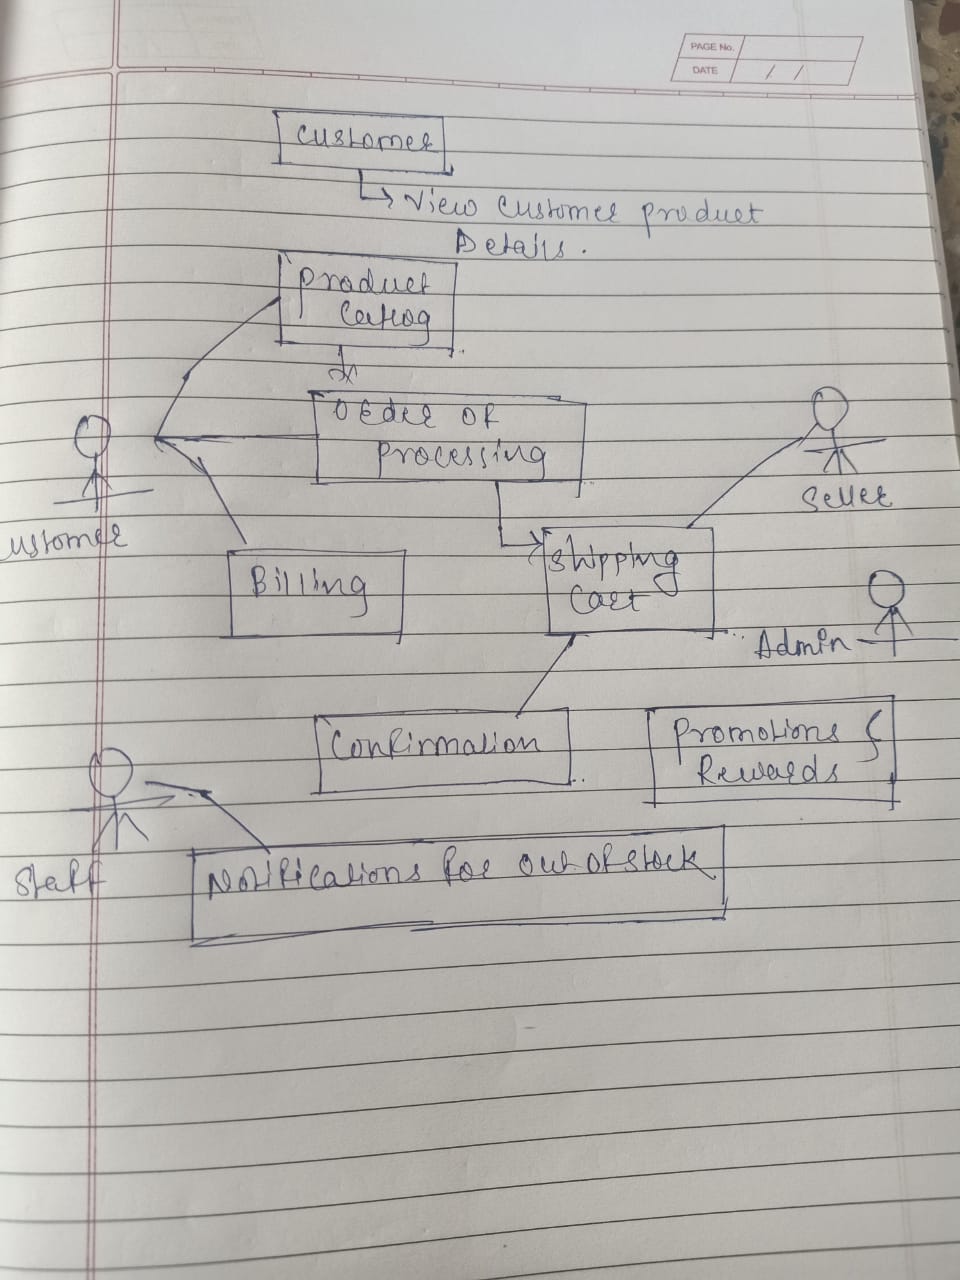 PAGE No.
DATE / /
Customer
View Customer product
Details.
Product
Catlog
Order of
processing
Seller
Customer
Shipping
Cart
Billing
Admin
Confirmation
Promotions &
Rewards
Staff
Notifications for out of stock